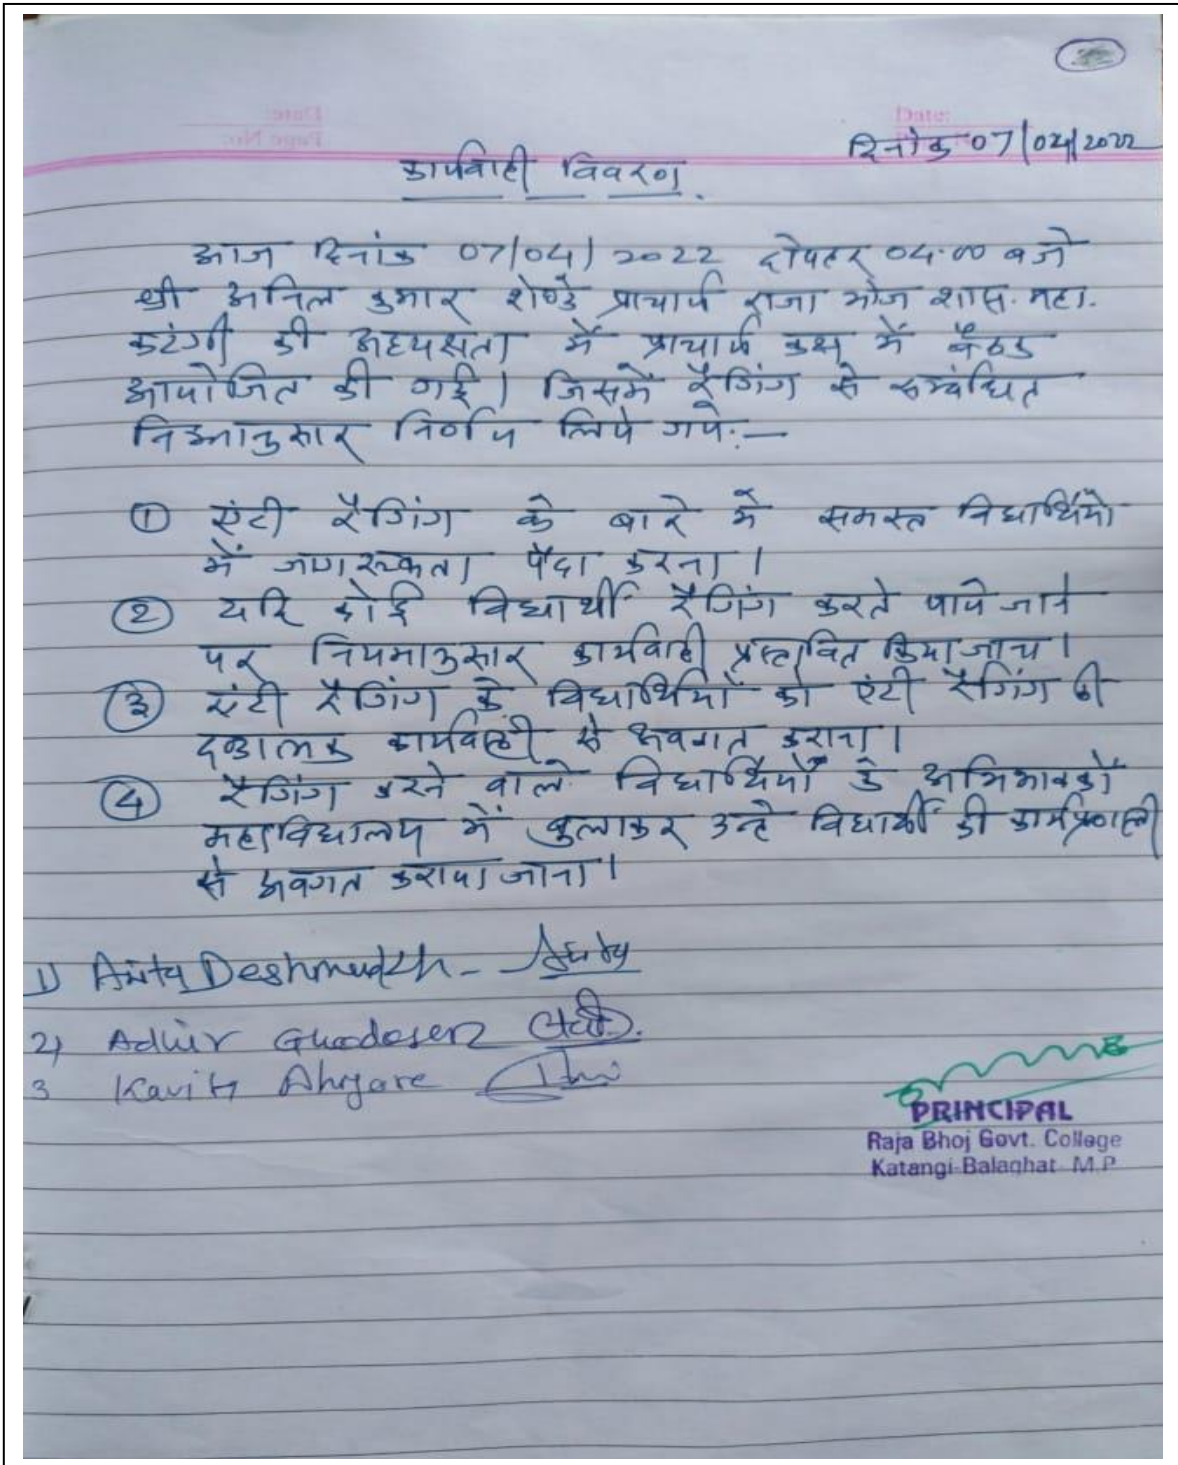 Date:
दिनांक 07/04/2022
कार्यवाही विवरण.
आज दिनांक 07/04/2022 दोपहर 04.00 बजे
श्री अनिल कुमार शेण्डे प्राचार्य राजा भोज शास. महा.
कटंगी की अध्यक्षता में प्राचार्य कक्ष में बैठक
आयोजित की गई। जिसमें रैगिंग से सम्बंधित
निम्नानुसार निर्णय लिये गये:—
① एंटी रैगिंग के बारे में समस्त विद्यार्थियों
में जागरूकता पैदा करना।
② यदि कोई विद्यार्थी रैगिंग करते पाये जाने
पर नियमानुसार कार्यवाही प्रस्तावित किया जाय।
③ एंटी रैगिंग के विद्यार्थियों को एंटी रैगिंग की
दण्डात्मक कार्यवाही से अवगत कराना।
④ रैगिंग करने वाले विद्यार्थियों के अभिभावकों
महाविद्यालय में बुलाकर उन्हे विद्यार्थी की कार्यप्रणाली
से अवगत कराया जाना।
1) Anita Deshmukh -
2) Adhir
3 Kavita
PRINCIPAL
Raja Bhoj Govt. College
Katangi Balaghat M.P